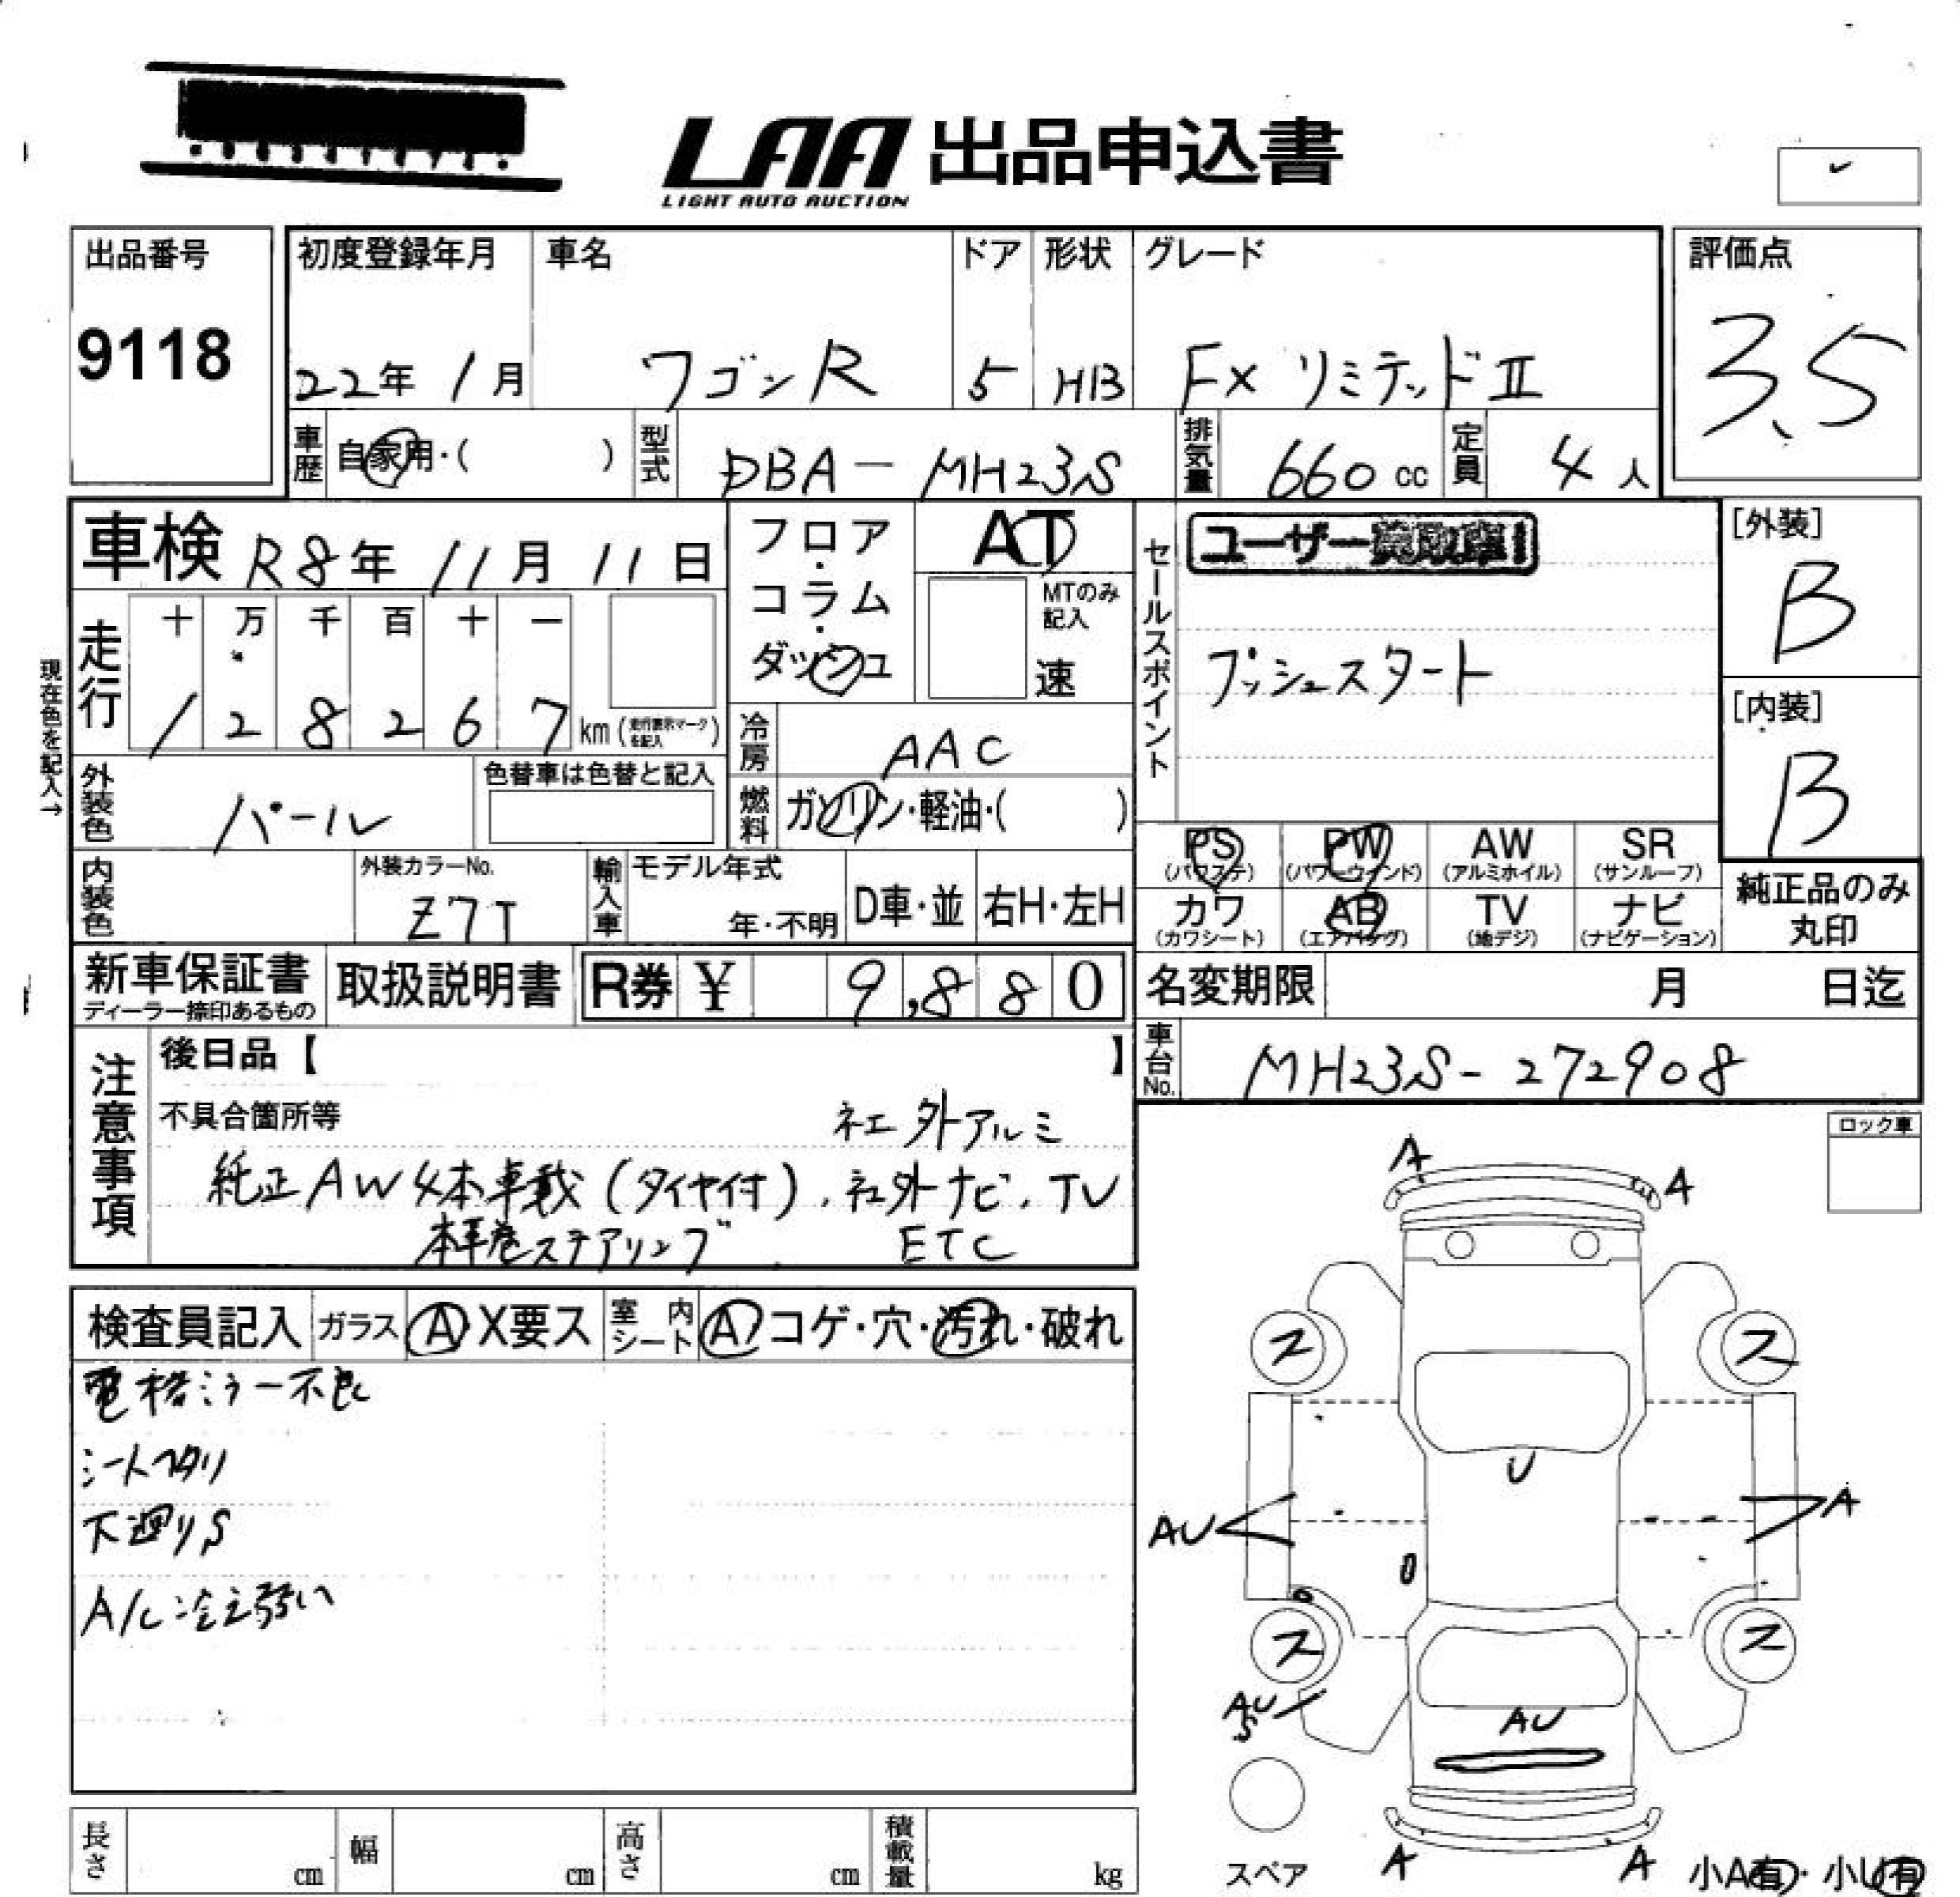 LAA 出品申込書
LIGHT AUTO AUCTION
出品番号
9118
初度登録年月 車名 ドア 形状 グレード
22年 1月 ワゴンR 5 HB FX リミテッドⅡ
評価点
3.5
車歴 自家用・( ) 型式 DBA-MH23S 排気量 660cc 定員 4人
車検 R8年 11月 11日
フロア・コラム・ダッシュ
AT
MTのみ記入
速
セールスポイント
ユーザー買取車!
プッシュスタート
[外装]
B
[内装]
B
現在色を記入→
走行 十 万 千 百 十 一
1 2 8 2 6 7 km (走行表示マークを記入)
冷房 AAC
燃料 ガソリン・軽油・( )
外装色 パール 色替車は色替と記入
内装色 外装カラーNo. Z7T
輸入車 モデル年式 年・不明 D車・並 右H・左H
PS PW AW SR
(パワステ) (パワーウィンド) (アルミホイル) (サンルーフ)
カワ AB TV ナビ
(カワシート) (エアバッグ) (地デジ) (ナビゲーション)
純正品のみ
丸印
新車保証書 取扱説明書 R券 ¥ 9,880
ディーラー捺印あるもの
名変期限 月 日迄
車台No. MH23S-272908
注意事項
後日品【 】
不具合箇所等 社外アルミ
純正AW4本車載(タイヤ付)、社外ナビ、TV
本革巻ステアリング、 ETC
ロック車
検査員記入 ガラス A X要ス 室内シート A コゲ・穴・汚れ・破れ
電格ミラー不良
シートヘタリ
下廻りS
A/C冷え弱い
A A
ス ス
U
AU A
ス ス
AU
S
AU
スペア
A A
小A有・小U有
長さ cm 幅 cm 高さ cm 積載量 kg